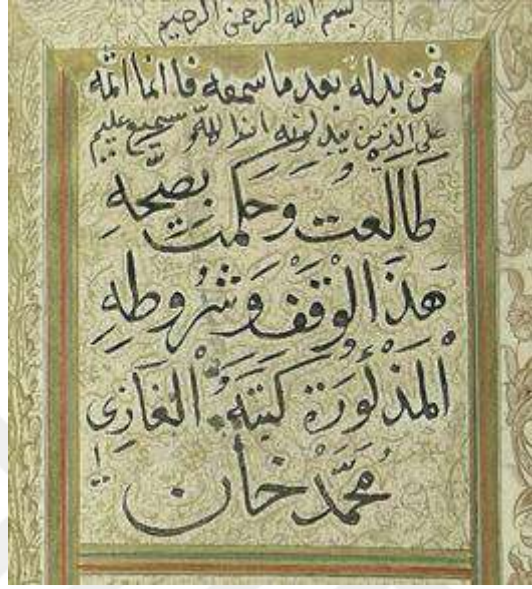 بسم الله الرحمن الرحيم
فمن بدله بعد ما سمعه فاانما اثمه
على الذين يبدلونه ان الله سميع عليم
طَالَعت وَحكمت بصحَّه
هَذَا الوَقف وَشرُوطهِ
الْمَذْكُورَة كتبَهُ الْغَازِى
مُحمَّد خان